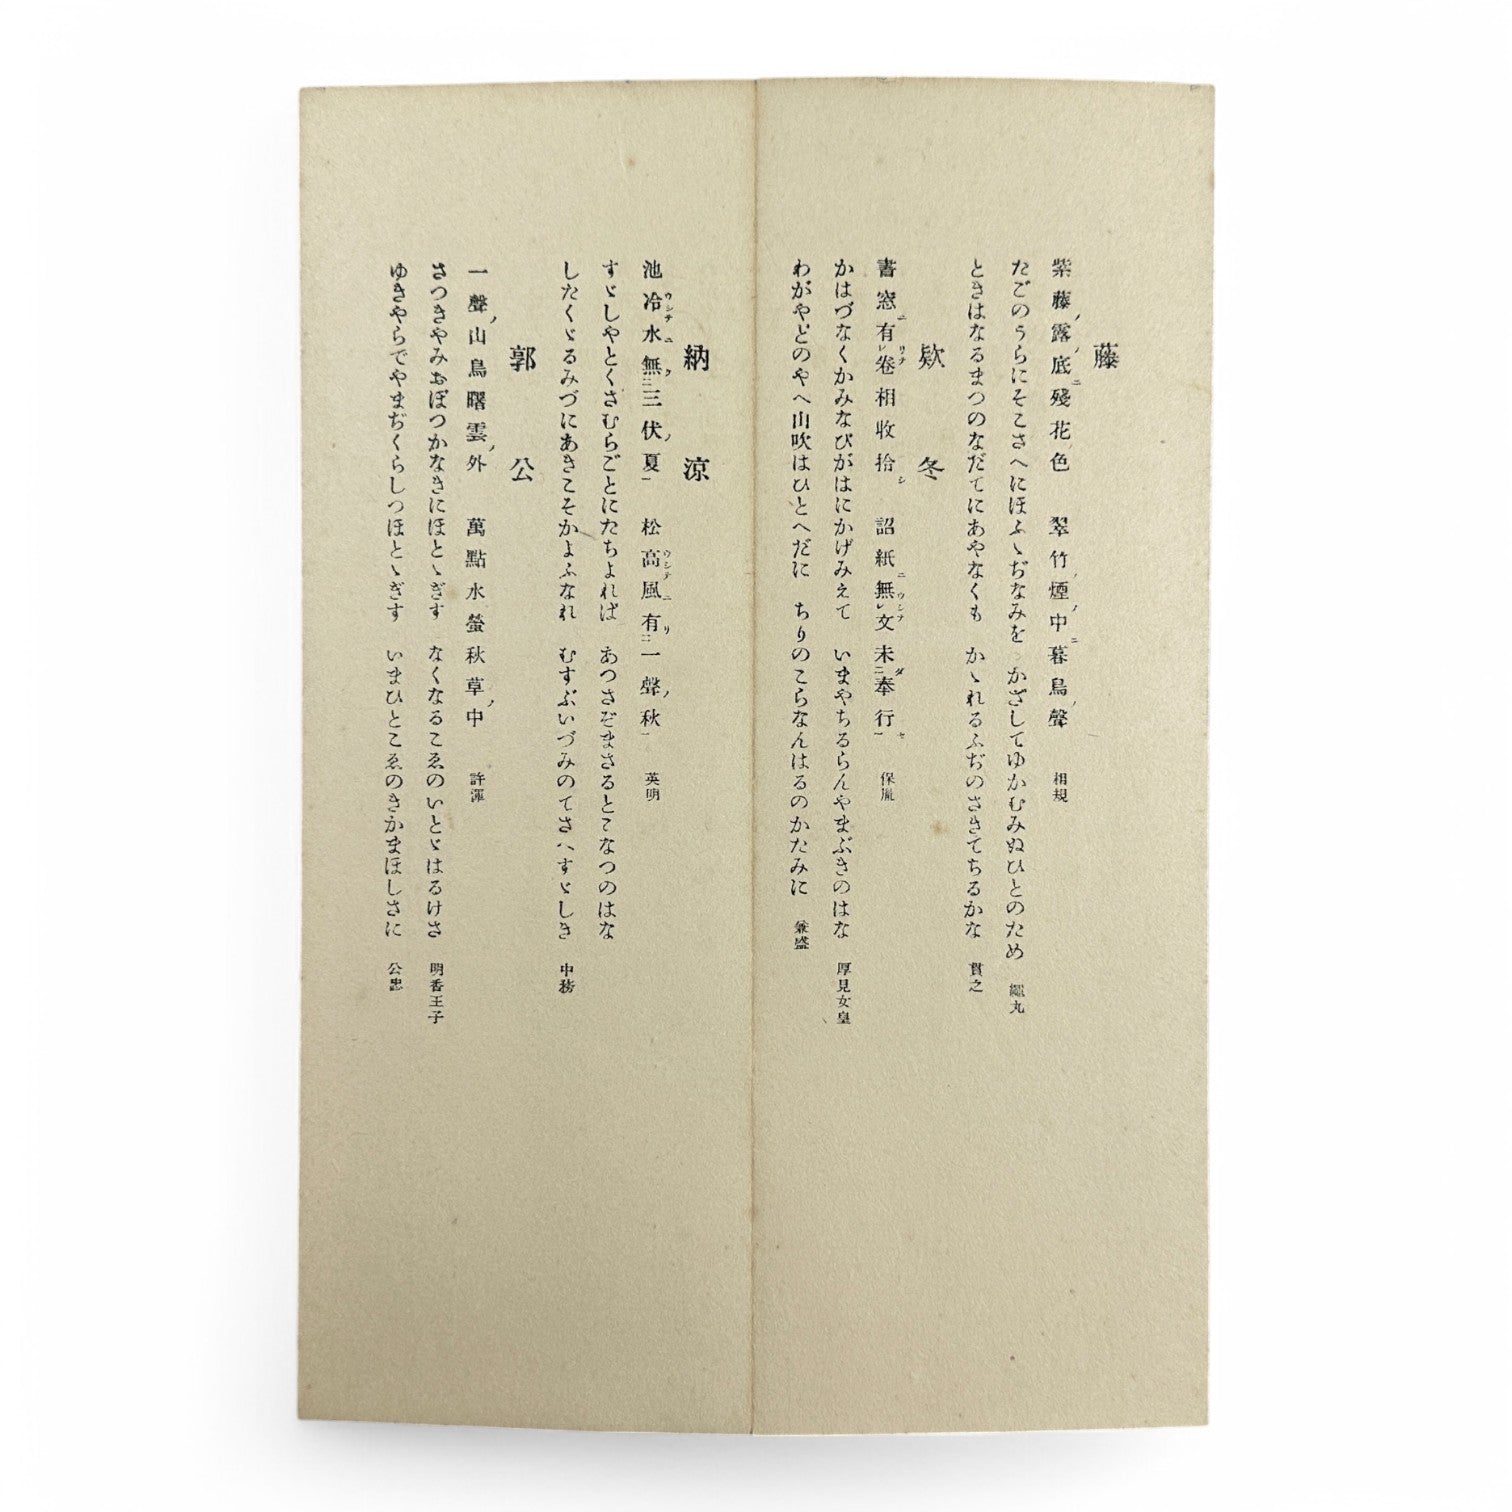 藤
紫藤ノ露ノ底ニ殘花ノ色　翠竹ノ煙ノ中ニ暮鳥ノ聲　相規
たごのうらにそこさへにほふゝぢなみを　かざしてゆかむみぬひとのため　繩丸
ときはなるまつのなだてにあやなくも　かゝれるふぢのさきてちるかな　貫之
欵冬
書窓ニ有レリテ卷相收拾シ　詔紙ニ無レウシテ文未ダ二奉行一セ　保胤
かはづなくかみなびがはにかげみえて　いまやちるらんやまぶきのはな　厚見女皇
わがやどのやへ山吹はひとへだに　ちりのこらなんはるのかたみに　兼盛
納涼
池冷ウシテ水ニ無二ク三伏ノ夏一　松高ウシテ風ニ有二リ一聲ノ秋一　英明
すゞしやとくさむらごとにたちよれば　あつさぞまさるとこなつのはな
したくゞるみづにあきこそかよふなれ　むすぶいづみのてさへすゞしき　中務
郭公
一聲ノ山鳥曙雲ノ外　萬點水螢秋草ノ中　許渾
さつきやみおぼつかなきにほとゝぎす　なくなるこゑのいとゞはるけさ　明香王子
ゆきやらでやまぢくらしつほとゝぎす　いまひとこゑのきかまほしさに　公忠